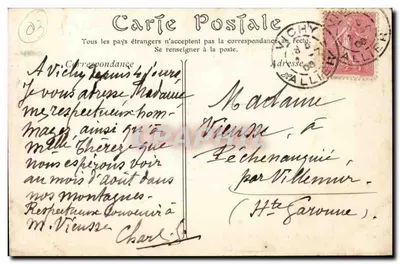 03
Carte Postale
Tous les pays étrangers n'acceptent pas la correspondance au recto
Se renseigner à la poste.
Correspondance
Adresse
VICHY
ALLIER
ALLIER
A Vichy depuis 4 jours,
Je vous adresse Madame
mes respectueux hom-
mages ainsi qu'à
Mlle Thérèze que
nous espérons voir
au mois d'août dans
nos montagnes.
Respectueux souvenir à
M. Vieusse
Charl
Madame
Vieusse, à
Péchenauquié
par Villemur
(Hte Garonne)